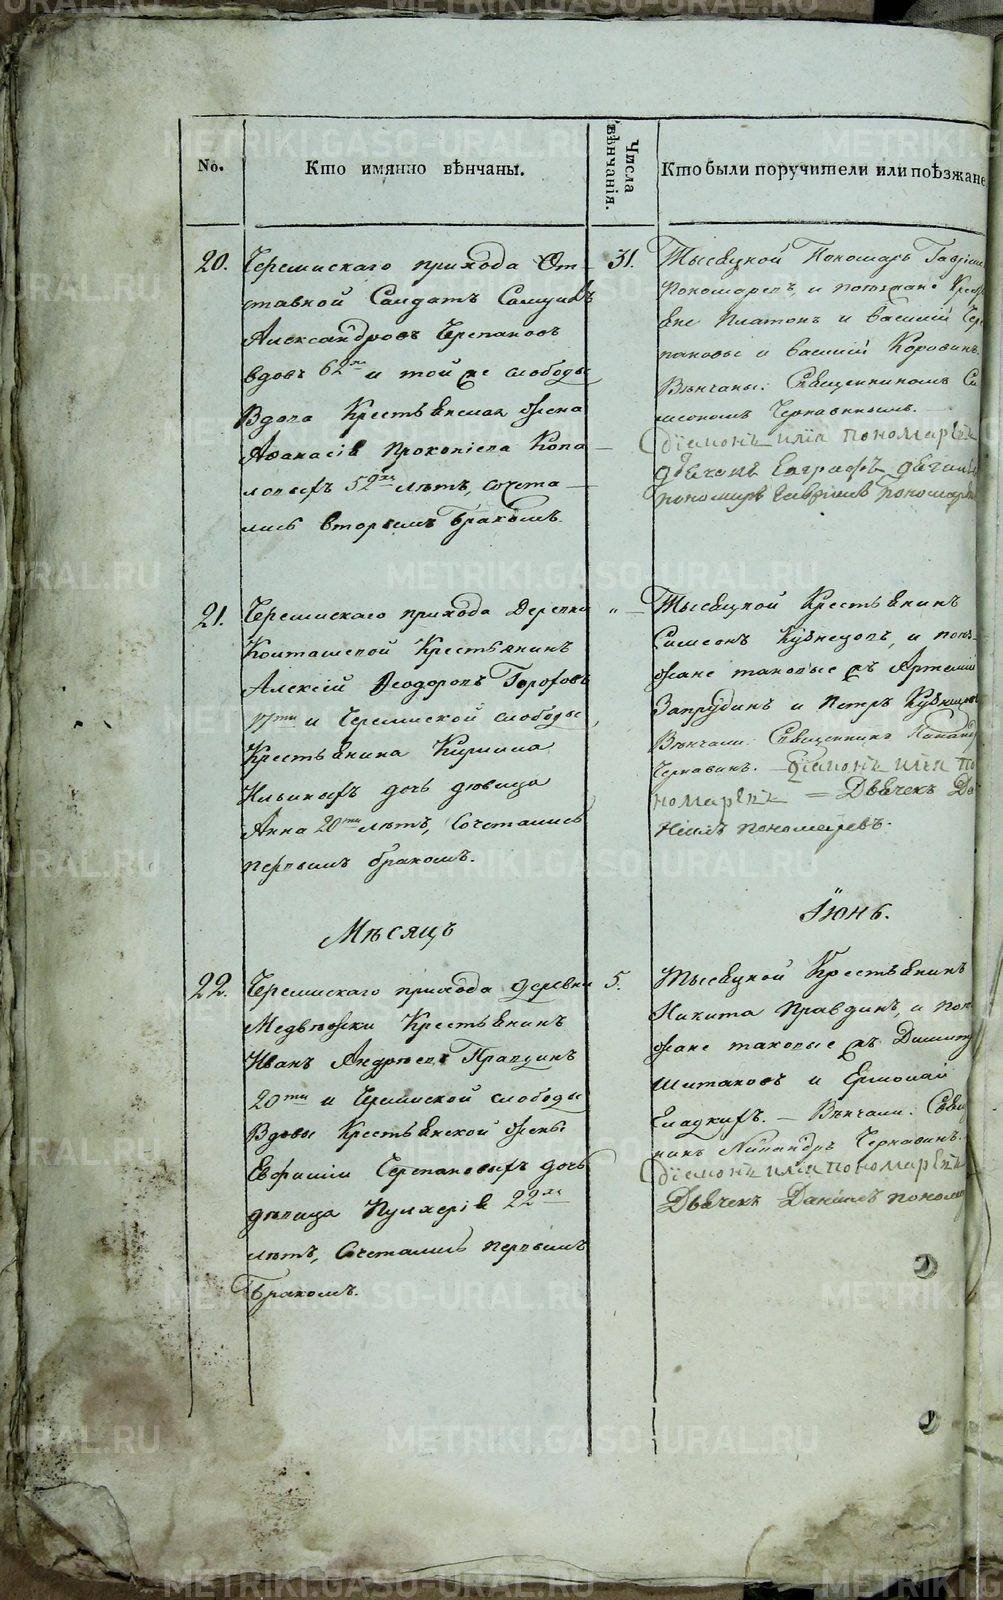 No.
Кто имянно вѣнчаны.
Числа вѣнчанія.
Кто были поручители или поѣзжане
20.
Черемискаго прихода От
ставной Салдатъ
Александровъ Черепановъ
вдовъ 62 и той же слободы
Вдова Крестьянская жена
Афанасія Прокопіева Копа
ловыхъ 52 лѣтъ, сочета
лись вторымъ бракомъ.
31.
Тысяцкой Пономарь Гавріил
Пономаревъ, и поезжане Крест
яне Платонъ и Василій Чер
пановы и Василій Коровинъ.
Вѣнчаны: Священникомъ Си
месономъ Чернавинымъ.
Діаконъ илiя пономаревъ
дьячекъ Евграфъ
пономарь Гавріилъ пономарев
21.
Черемискаго прихода Деревни
Колташевой Крестьянинъ
Алексій Ѳеодоровъ Гороховъ
17ти и Черемиской слободы
Крестьянина Кирила
Ильиныхъ дочь дѣвица
Анна 20ти лѣтъ, сочетались
первымъ бракомъ.
"
Тысяцкой Крестьянинъ
Симеонъ Кузнецовъ, и поѣз-
жане таковые жъ Артемій
Запрудинъ и Петръ Кузнецов
Вѣнчали: Священникъ Никанд
Чернавинъ. Діаконъ илiя по
номаревъ = Дьячекъ Да
ніилъ пономаревъ.
Мѣсяцъ
Іюнь.
22.
Черемискаго прихода деревни
Медвѣжки Крестьянинъ
Иванъ Андрѣевъ Правдинъ
20ти и Черемиской слободы
Вдовы Крестьянской жены
Евфиміи Черепановыхъ дочь
дѣвица Пулхерія 22
лѣтъ, Сочетались первымъ
бракомъ.
5.
Тысяцкой Крестьянинъ
Никита Правдинъ, и поѣз
жане таковые жъ Димитр
Шитиковъ и Ермолай
Гладкихъ. – Вѣнчали: Свя
никъ Никандръ Чернавинъ.
Діаконъ илiя пономаревъ
Дьячекъ Даніилъ пономар
METRIKI.GASO-URAL.RU